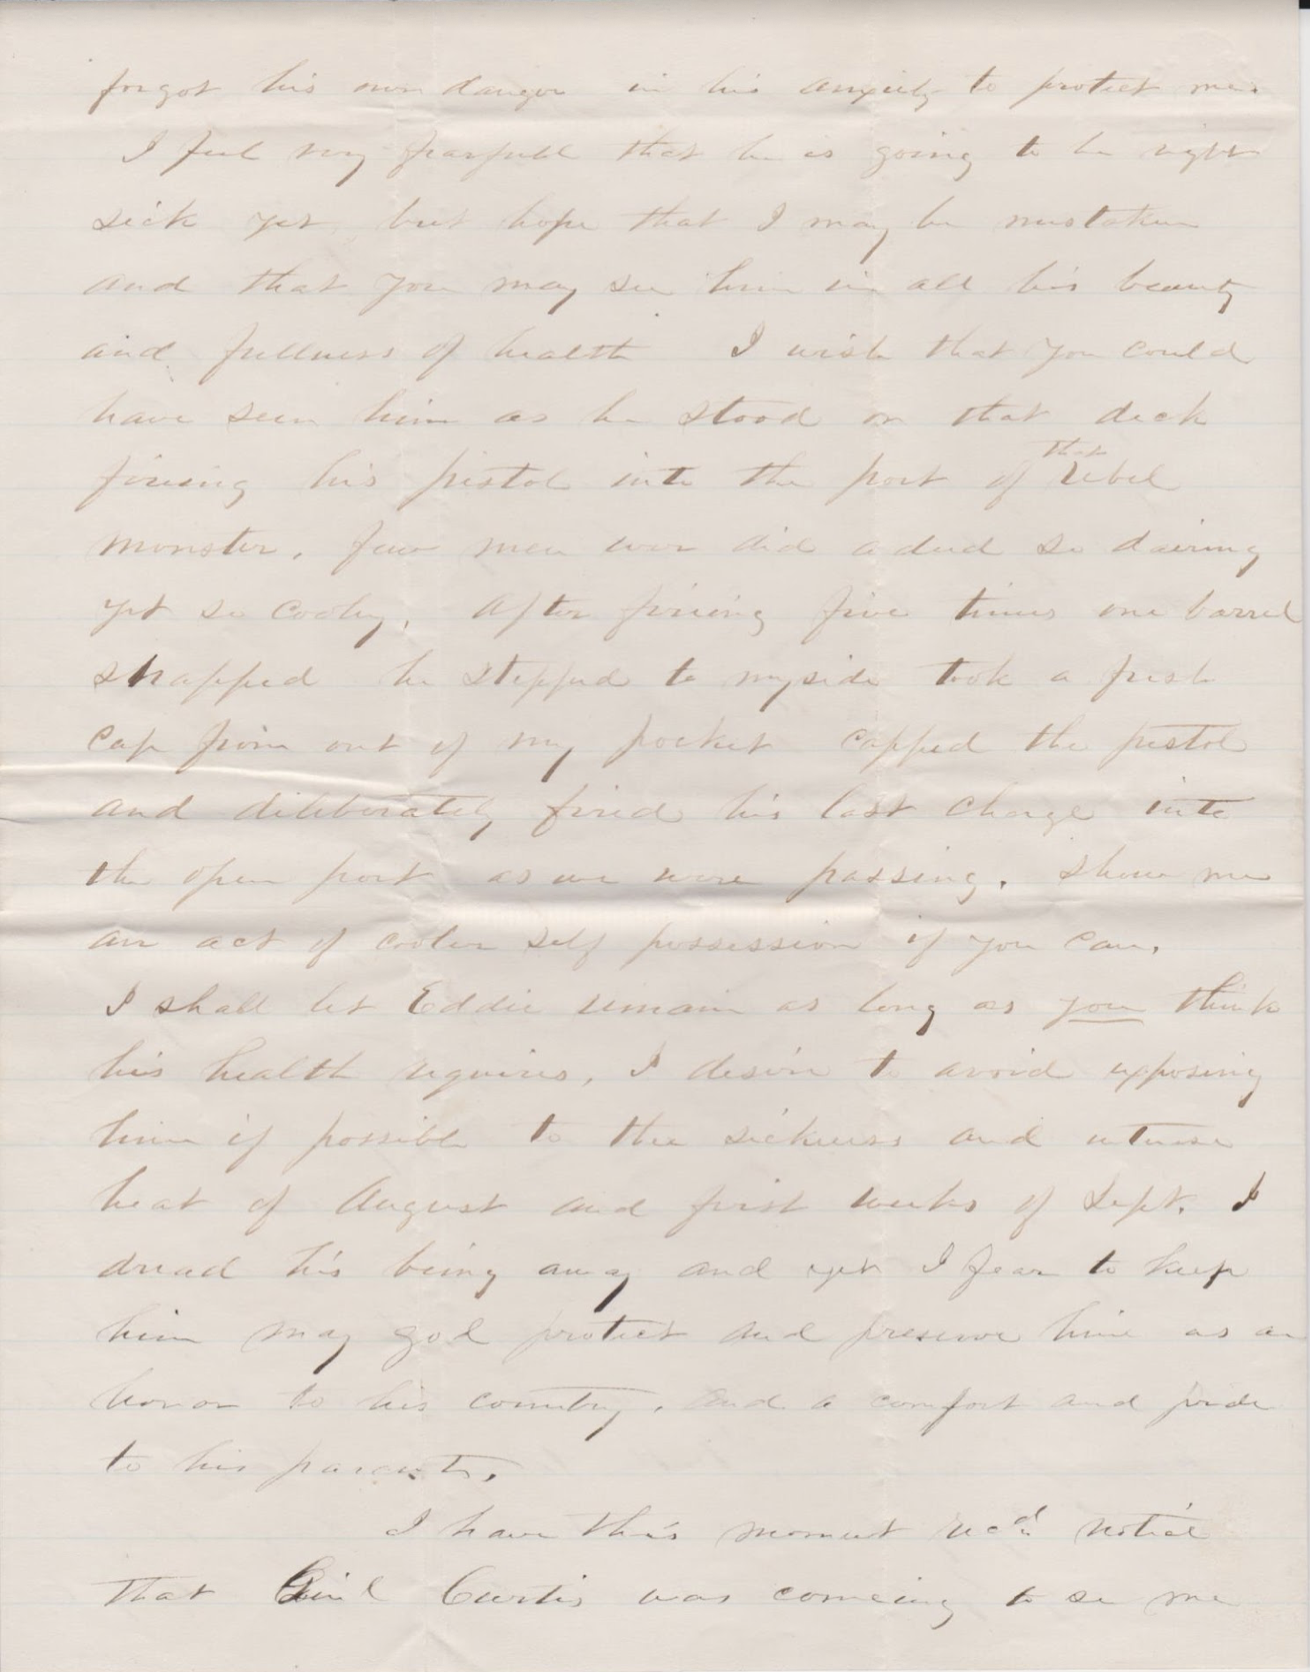 forgot his own danger in his anxiety to protect me.
I feel very fearfull that he is going to be right
sick yet, but hope that I may be mistaken
and that you may see him in all his beauty
and fullness of health I wish that you could
have seen him as he stood on that deck
fireing his pistol into the port of that rebel
monster. few men ever did a deed so daring
yet so cooly. After fireing five times one barrel
snapped he stepped to my side took a fresh
cap from out of my pocket capped the pistol
and deliberately fired his last charge into
the open port as we were passing. Show me
an act of cooler self possession if you can.
I shall let Eddie remain as long as you think
his health requires. I desire to avoid exposing
him if possible to the sickness and intense
heat of August and first weeks of Sept. I
dread his being away and yet I fear to keep
him may god protect and preserve him as an
honor to his country. and a comfort and pride
to his parents.
I have this moment recd notice
that Genl Curtis was comeing to see me